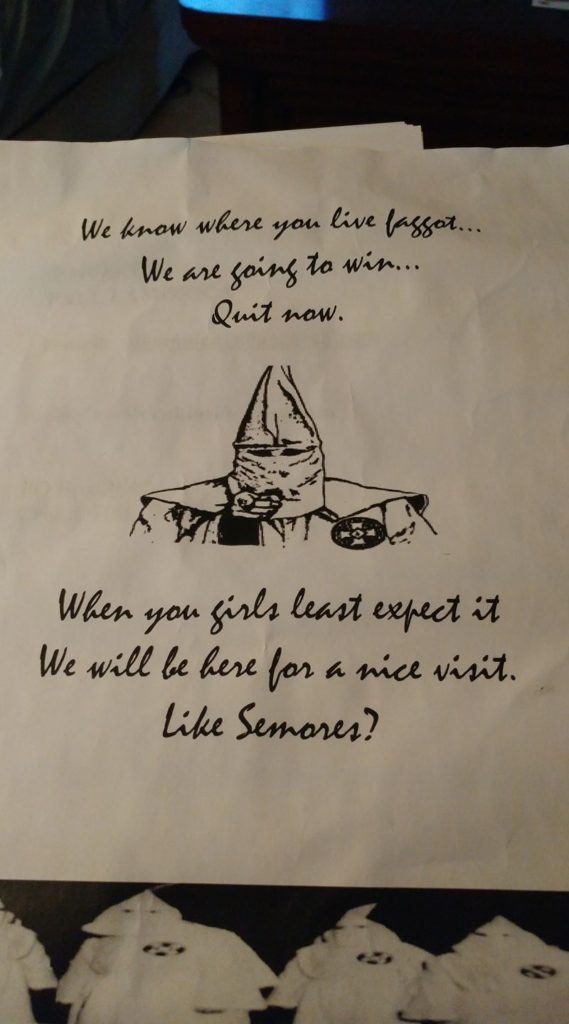 We know where you live faggot...
We are going to win...
Quit now.
When you girls least expect it
We will be here for a nice visit.
Like Semores?